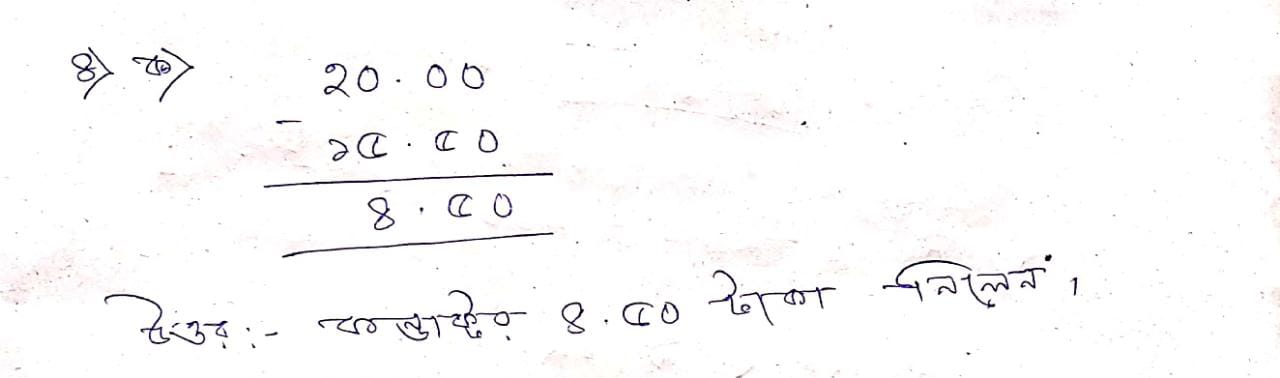 ৪) ক)
২০.০০
- ১৫.৫০
৪.৫০
উত্তর:- কন্ডাক্টর ৪.৫০ টাকা নিলেন।